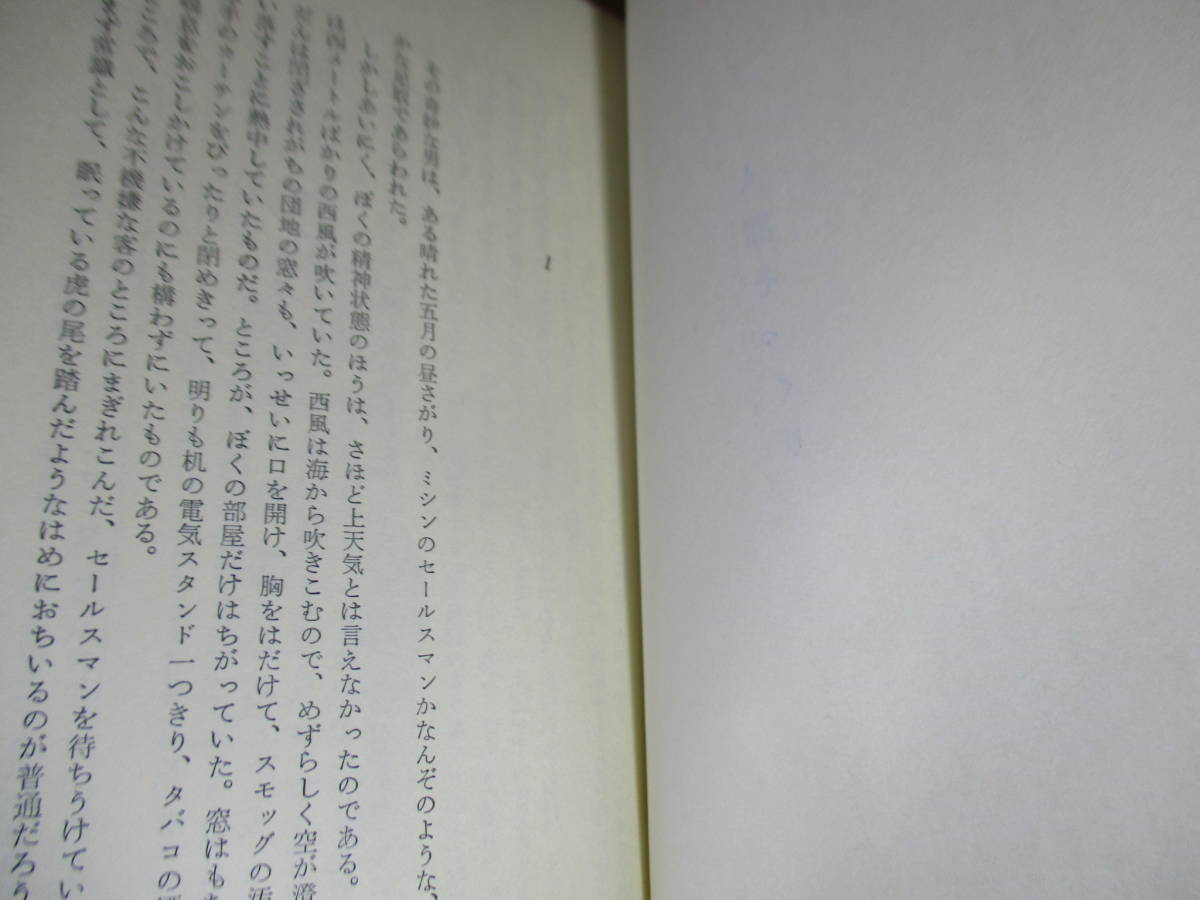 1
その奇妙な男は、ある晴れた五月の昼さがり、ミシンのセールスマンかなんぞのような、
であらわれた。
しかしあいにく、ぼくの精神状態のほうは、さほど上天気とは言えなかったのである。
メートルばかりの西風が吹いていた。西風は海から吹きこむので、めずらしく空が澄
だんは閉ざされがちの団地の窓々も、いっせいに口を開け、胸をはだけて、スモッグの汚
い流すことに熱中していたものだ。ところが、ぼくの部屋だけはちがっていた。窓はも
のカーテンをぴったりと閉めきって、明りも机の電気スタンド一つきり、タバコの
をおこしかけているのにも構わずにいたものである。
ころで、こんな不機嫌な客のところにまぎれこんだ、セールスマンを待ちうけてい
ず常識として、眠っている虎の尾を踏んだようなはめにおちいるのが普通だろう